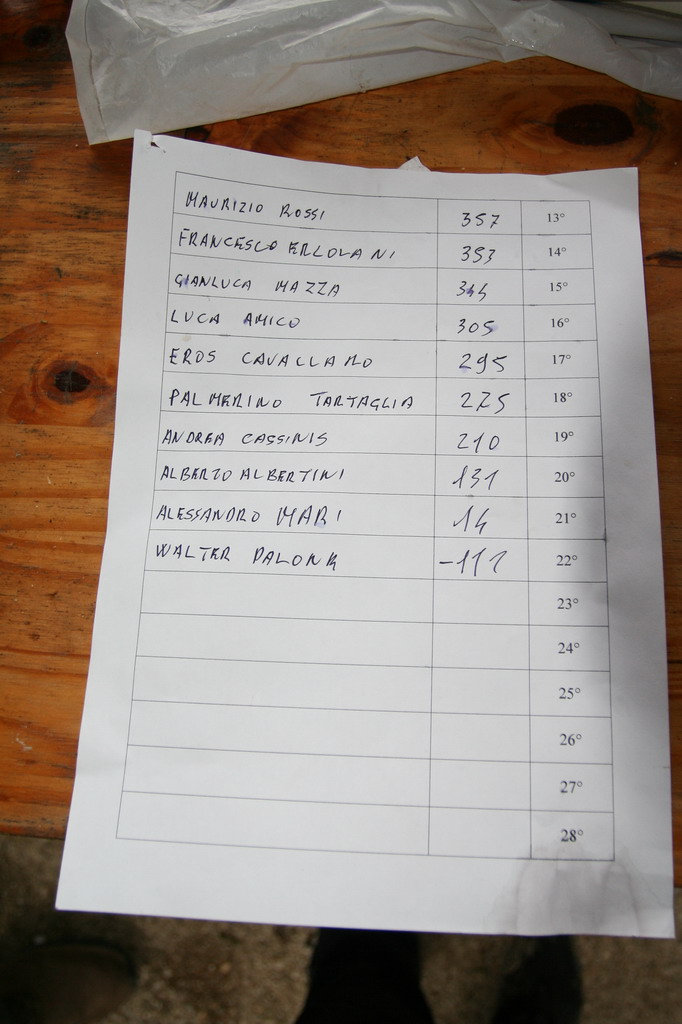 MAURIZIO ROSSI 357 13°
FRANCESCO ERCOLANI 353 14°
GIANLUCA MAZZA 345 15°
LUCA AMICO 305 16°
EROS CAVALLARO 295 17°
PALMERINO TARTAGLIA 275 18°
ANDREA CASSINIS 210 19°
ALBERTO ALBERTINI 131 20°
ALESSANDRO MARI 14 21°
WALTER -111 22°
23°
24°
25°
26°
27°
28°